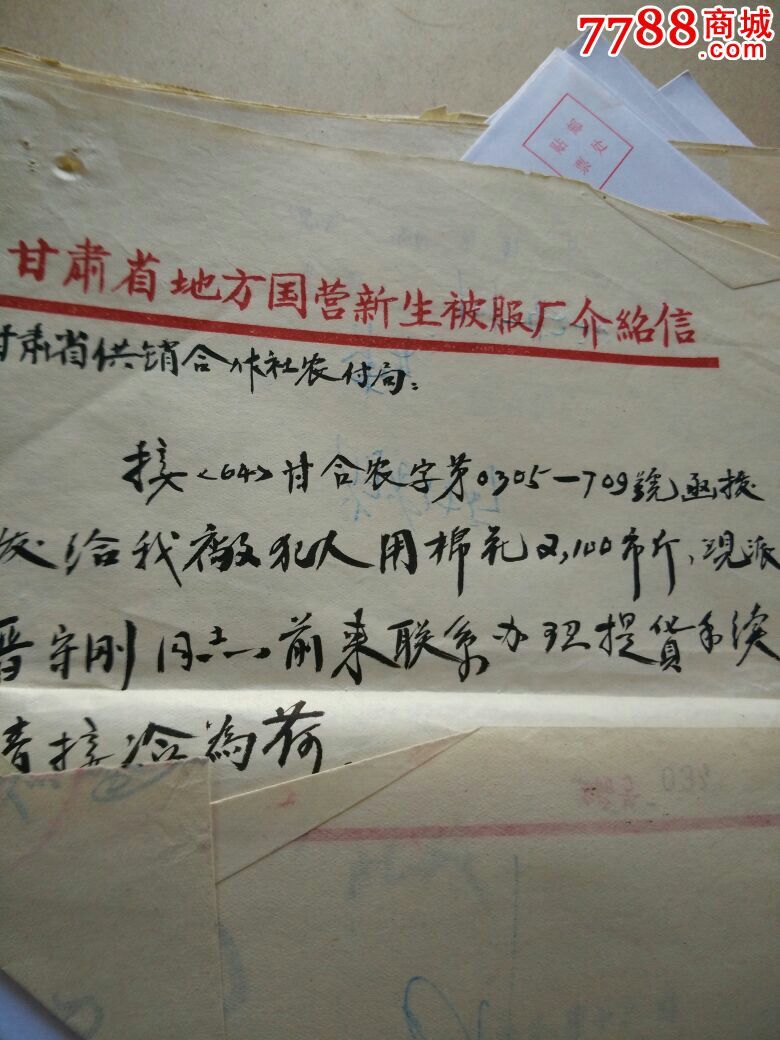 7788商城
.com
甘肃省地方国营新生被服厂介紹信
甘肃省供销合作社农付局：
接<64>甘合农字第0305—709號函拨
拨给我廠犯人用棉花2,100市斤，现派
晋守刚同志前来联系办理提貨手续
请接洽為荷